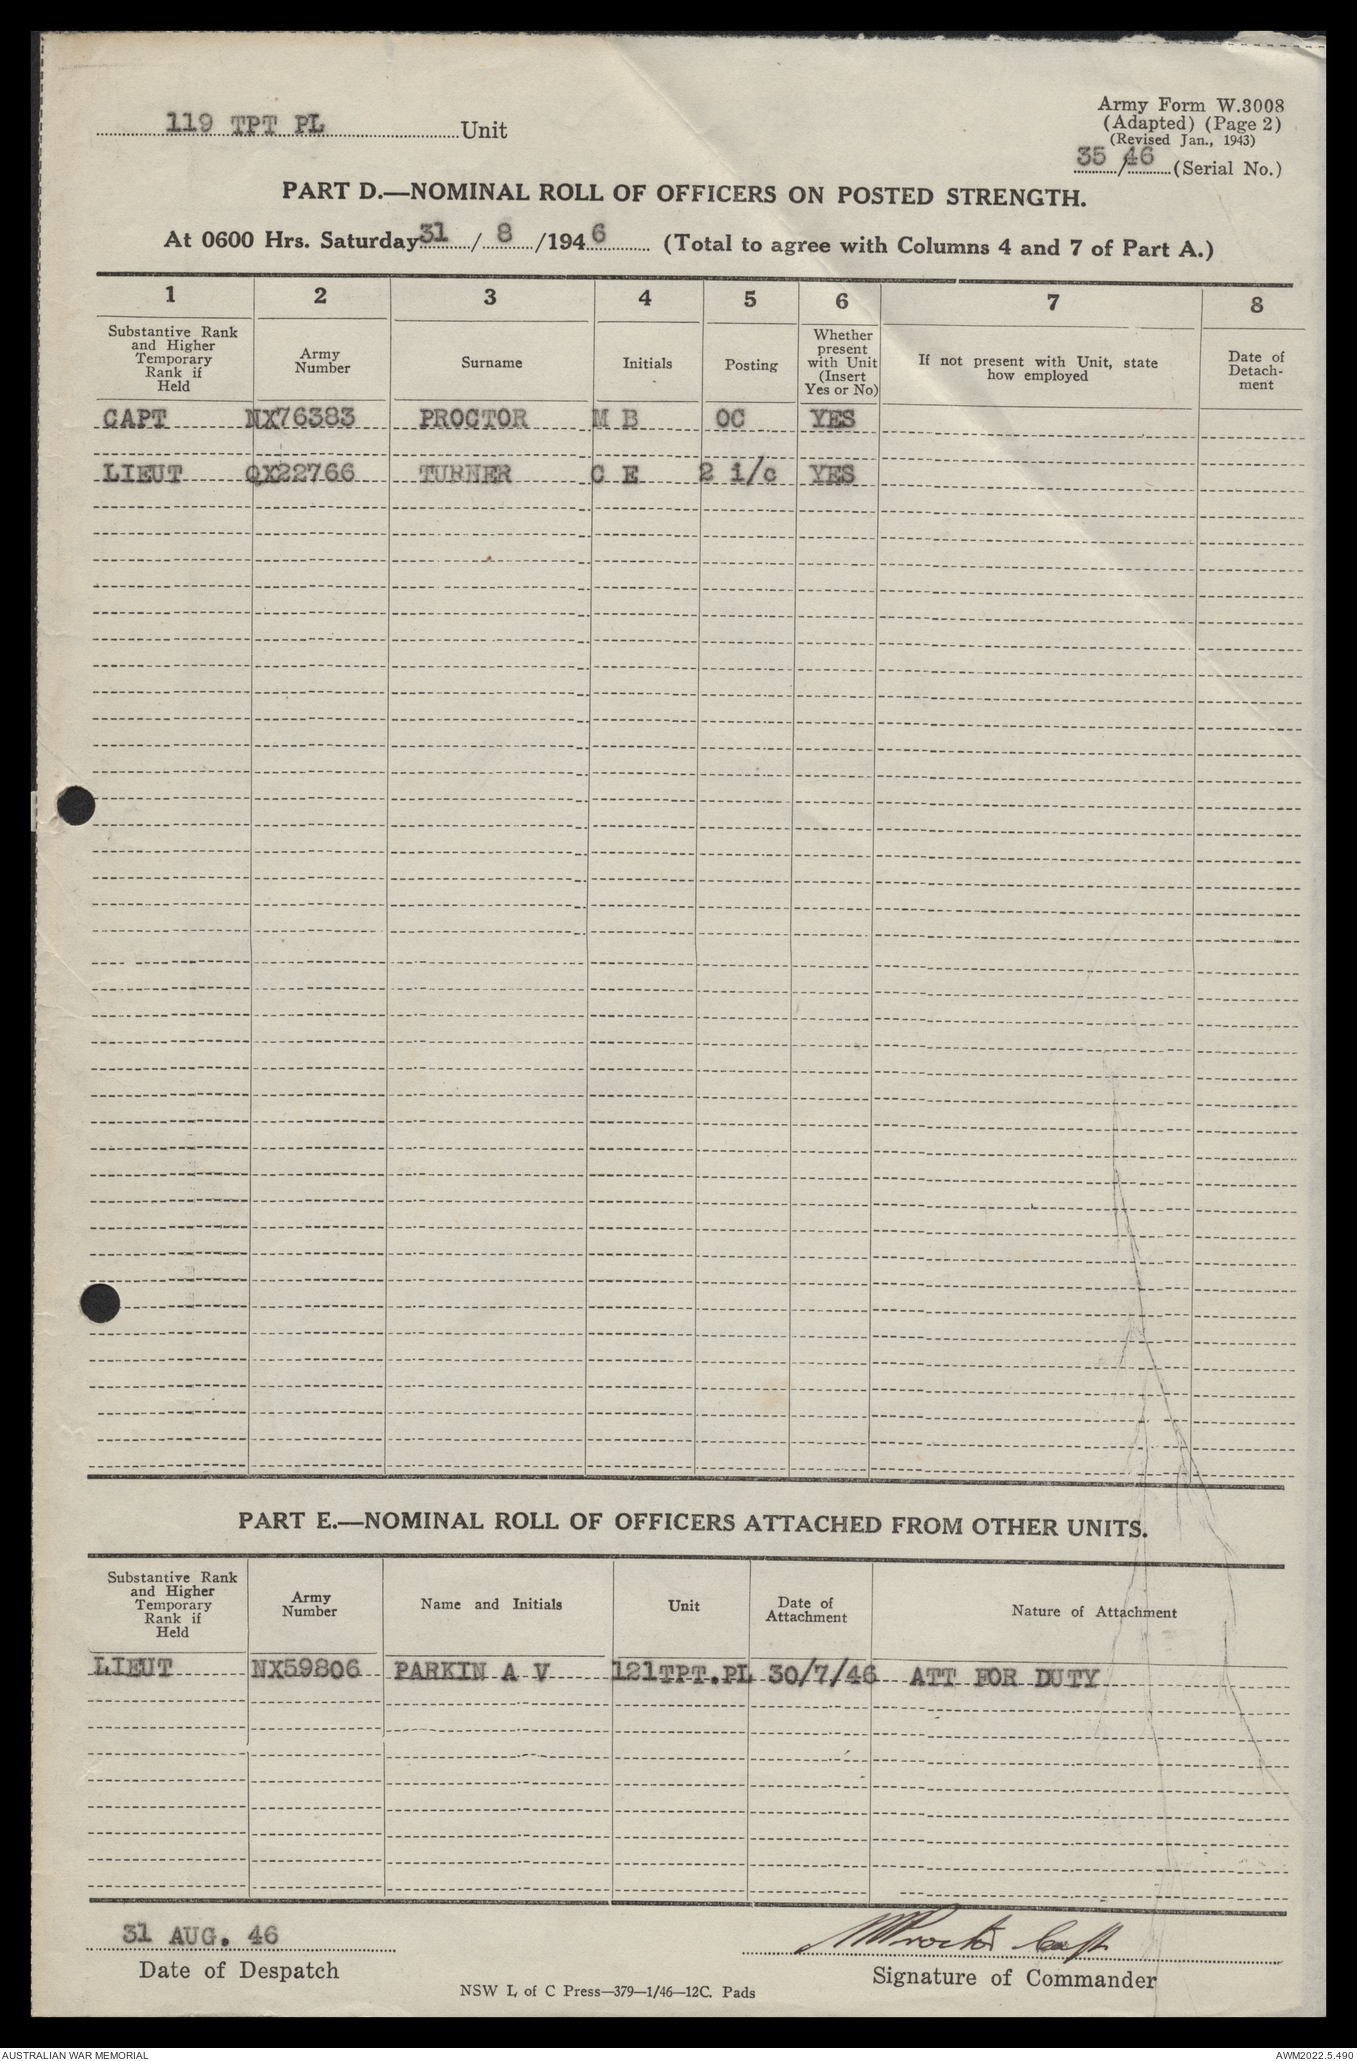 119 TPT PL Unit
Army Form W.3008
(Adapted) (Page 2)
(Revised Jan., 1943)
35/46 (Serial No.)
PART D.—NOMINAL ROLL OF OFFICERS ON POSTED STRENGTH.
At 0600 Hrs. Saturday 31/8/1946 (Total to agree with Columns 4 and 7 of Part A.)
1 2 3 4 5 6 7 8
Substantive Rank and Higher Temporary Rank if Held
Army Number
Surname
Initials
Posting
Whether present with Unit (Insert Yes or No)
If not present with Unit, state how employed
Date of Detach-ment
CAPT NX76383 PROCTOR M B OC YES
LIEUT QX22766 TURNER C E 2 i/c YES
PART E.—NOMINAL ROLL OF OFFICERS ATTACHED FROM OTHER UNITS.
Substantive Rank and Higher Temporary Rank if Held
Army Number
Name and Initials
Unit
Date of Attachment
Nature of Attachment
LIEUT NX59806 PARKIN A V 121TPT.PL 30/7/46 ATT FOR DUTY
31 AUG. 46
Date of Despatch
MProctor Capt
Signature of Commander
NSW L of C Press—379—1/46—12C. Pads
AUSTRALIAN WAR MEMORIAL
AWM2022.5.490